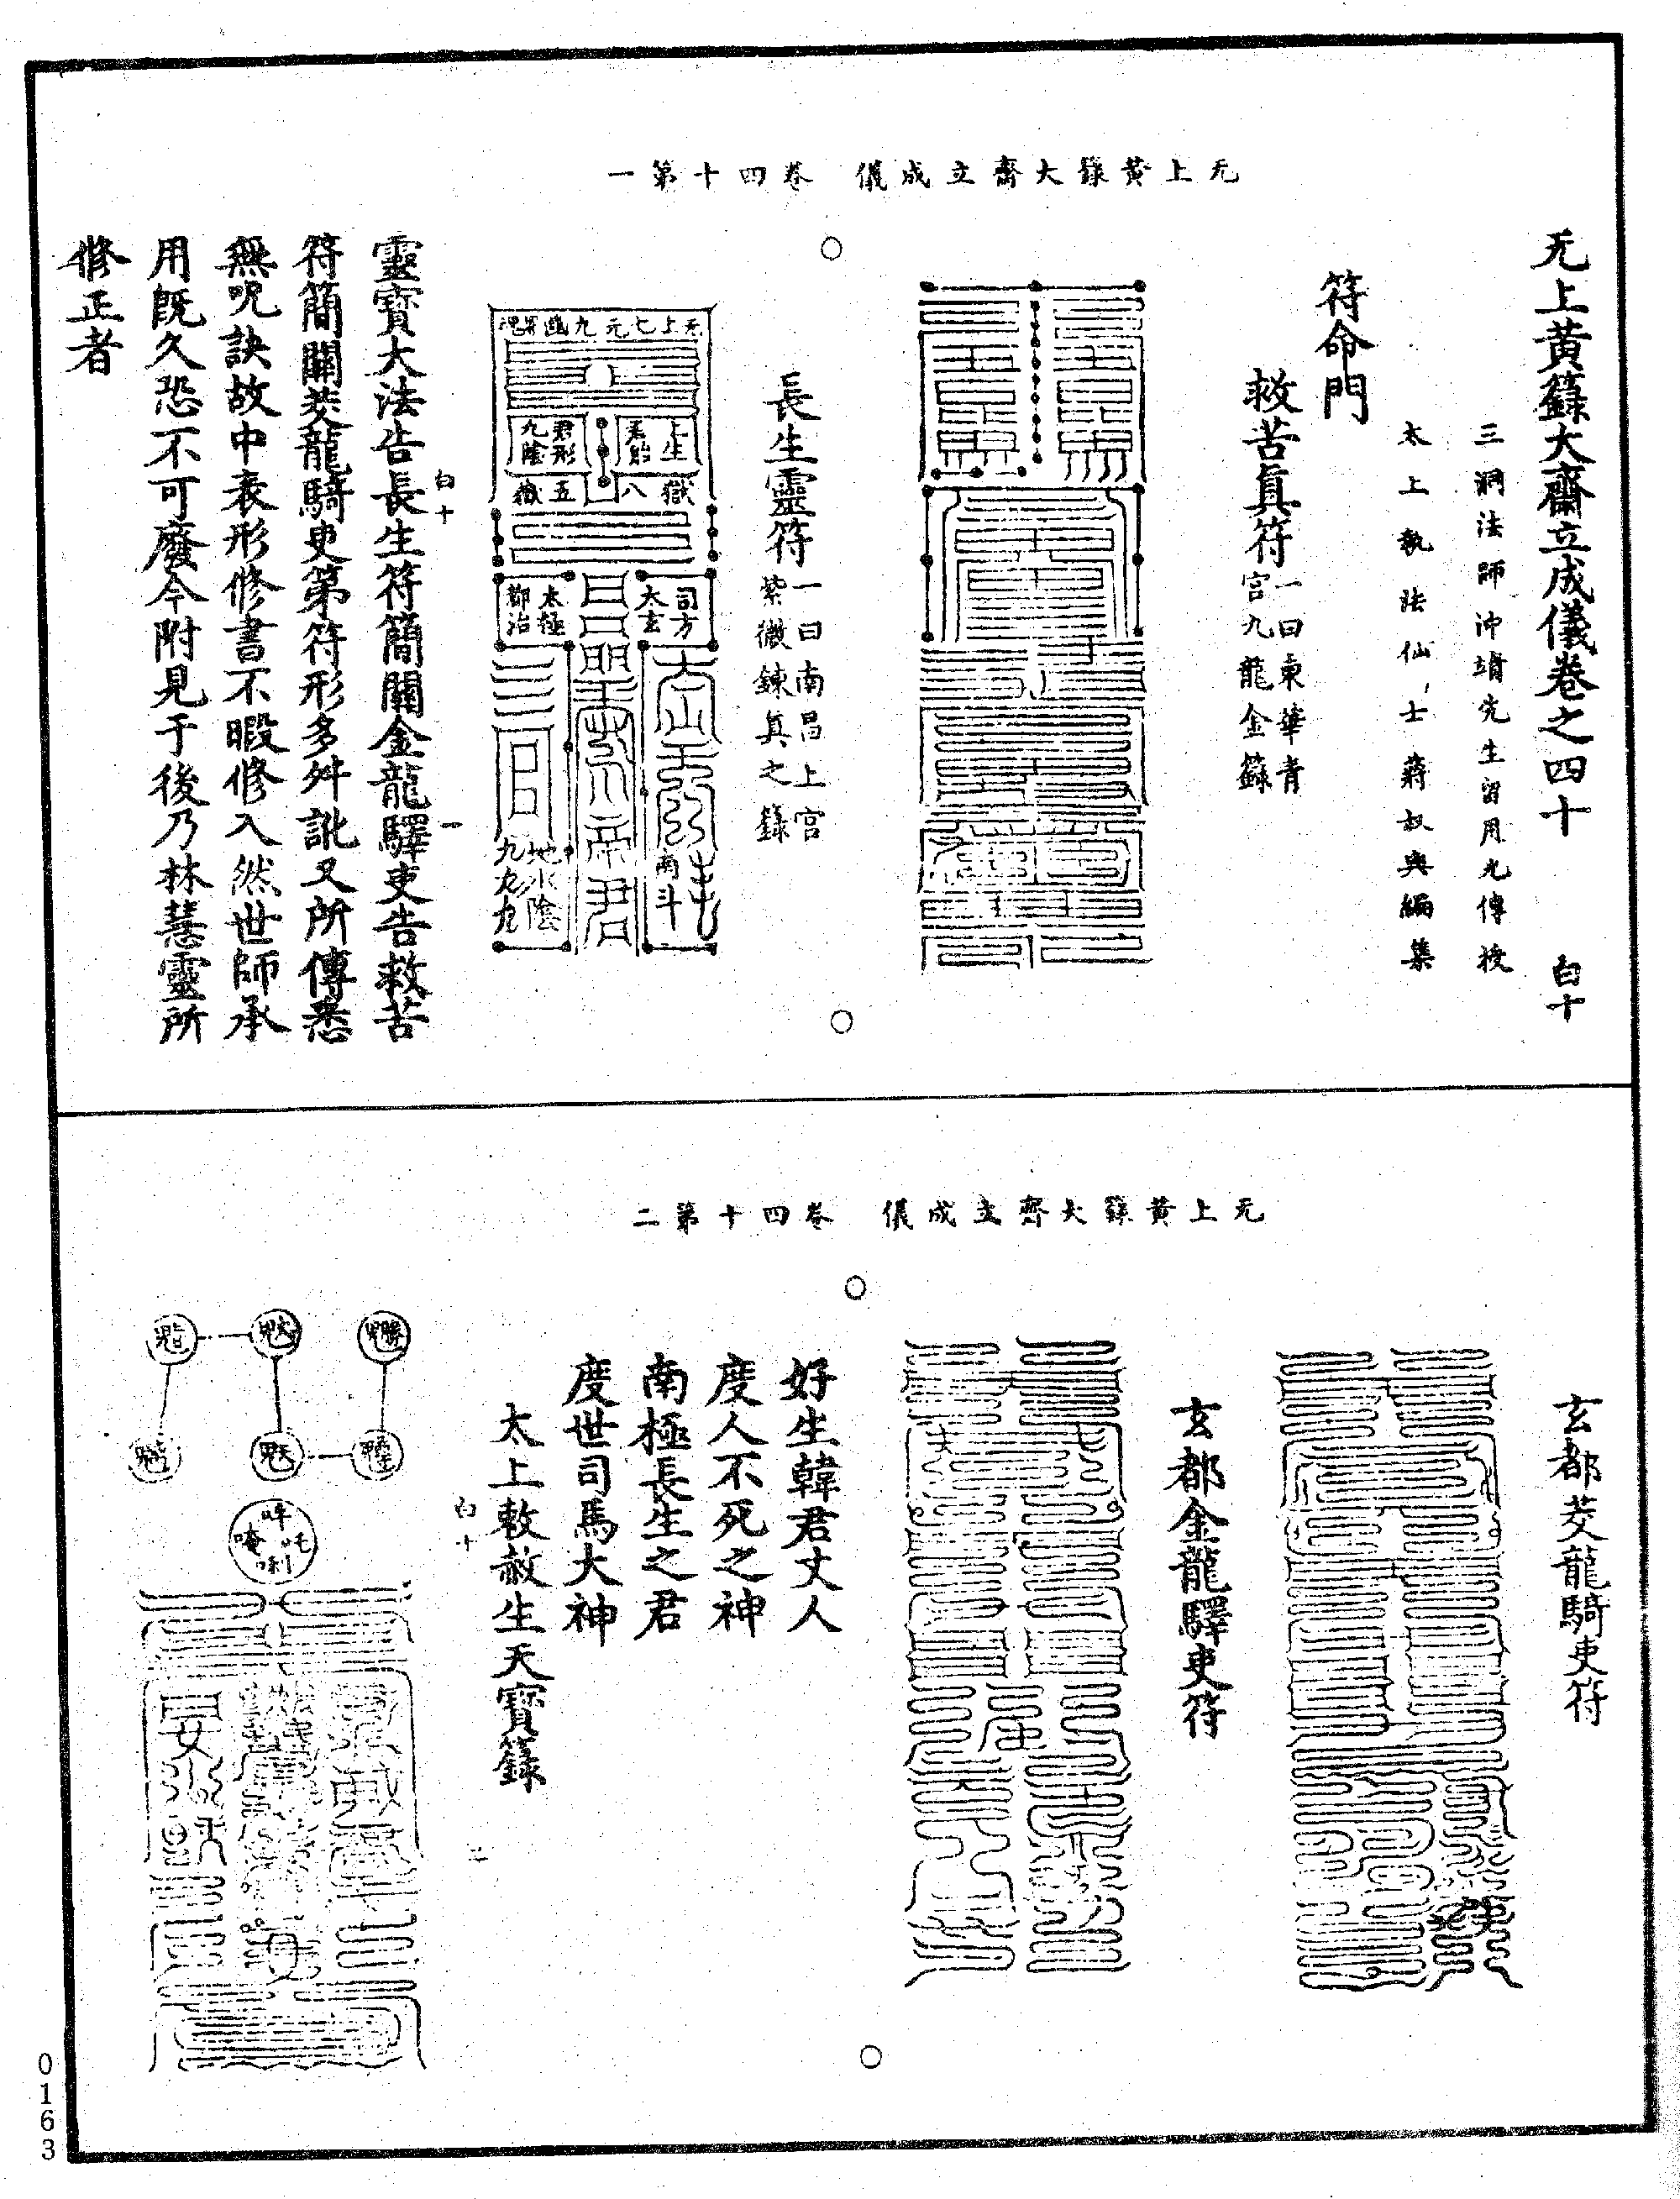 无上黃籙大齋立成儀 卷四十第一
无上黃籙大齋立成儀卷之四十 白十
三洞法師沖靖先生留用光傳授
太上執法仙士蔣叔輿編集
符命門
救苦真符 一曰東華青
宮九龍金籙
長生靈符 一曰南昌上宮
紫微鍊真之籙
无上七元九幽
上生
君形
九陰
八獄
五嶽
司方
太玄
太極
都治
帝君
南斗
地水陰
九九九
白十 一
靈寶大法告長生符簡關金龍驛吏告救苦
符簡關茭龍騎吏第符形多舛訛又所傳悉
無呪訣故中表形修書不暇修入然世師承
用既久恐不可廢今附見于後乃林慧靈所
修正者
无上黃籙大齋立成儀 卷四十第二
玄都茭龍騎吏符
玄都金龍驛吏符
好生韓君丈人
度人不死之神
南極長生之君
度世司馬大神
太上敕赦生天寶籙
白十 二
0163